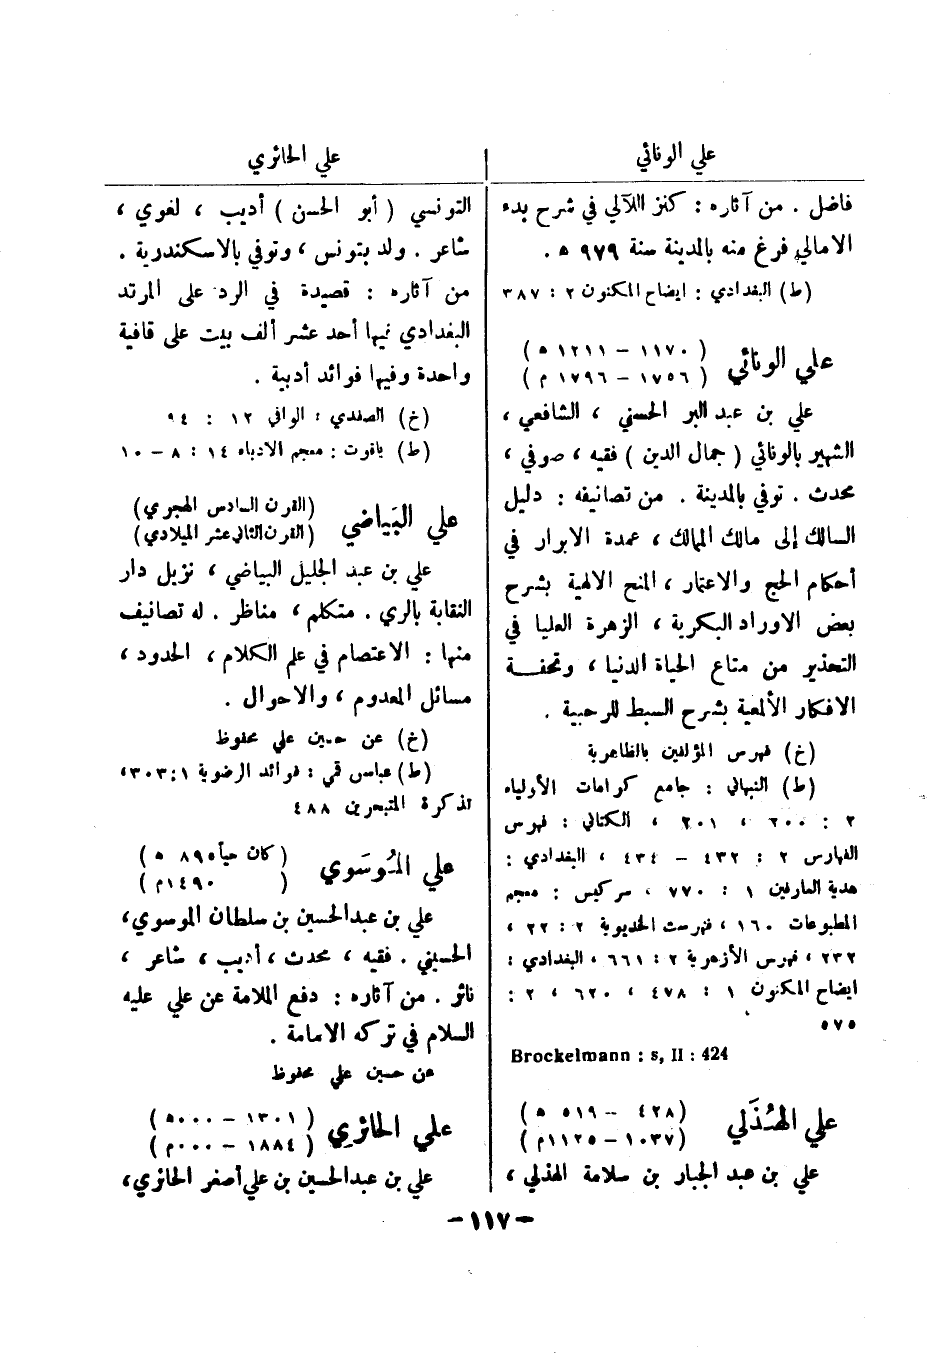 علي الونائي
علي الحائري
فاضل . من آثاره : كنز اللآلي في شرح بدء
الامالي فرغ منه بالمدينة سنة ٩٧٩ ه .
(ط) البغدادي : ايضاح المكنون ٢ : ٣٨٧
علي الونائي
( ١١٧٠ – ١٢١١ ه )
( ١٧٥٦ – ١٧٩٦ م )
علي بن عبد البر الحسني ، الشافعي ،
الشهير بالونائي ( جمال الدين ) فقيه ، صوفي ،
محدث . توفي بالمدينة . من تصانيفه : دليل
السالك إلى مالك الممالك ، عمدة الابرار في
أحكام الحج والاعتمار ، المنح الالهية بشرح
بعض الاوراد البكرية ، الزهرة العليا في
التحذير من متاع الحياة الدنيا ، وتحفة
الافكار الألمعية بشرح السبط للرحبية .
(خ) فهرس المؤلفين بالظاهرية
(ط) النبهاني : جامع كرامات الأولياء
٢ : ٢٠٠ ، ٢٠١ ، الكتاني : فهرس
الفهارس ٢ : ٤٣٢ – ٤٣٤ ، البغدادي :
هدية العارفين ١ : ٧٧٠ ، سركيس : معجم
المطبوعات ١٦٠ ، فهرست الخديوية ٢ : ٢٢ ،
٢٣٢ ، فهرس الأزهرية ٢ : ٦٦١ ، البغدادي :
ايضاح المكنون ١ : ٤٧٨ ، ٦٢٠ ، ٢ :
٥٧٥
Brockelmann : s, II : 424
علي الهُذَلي
( ٤٢٨ – ٥١٩ ه )
( ١٠٣٧ – ١١٢٥م )
علي بن عبد الجبار بن سلامة الهذلي ،
التونسي ( أبو الحسن ) أديب ، لغوي ،
شاعر . ولد بتونس ، وتوفي بالاسكندرية .
من آثاره : قصيدة في الرد على المرتد
البغدادي فيها أحد عشر ألف بيت على قافية
واحدة وفيها فوائد أدبية .
(خ) الصفدي : الوافي ١٢ : ٩٤
(ط) ياقوت : معجم الادباء ١٤ : ٨ – ١٠
علي البَيَاضي
(القرن السادس الهجري)
(القرن الثاني عشر الميلادي)
علي بن عبد الجليل البياضي ، نزيل دار
النقابة بالري . متكلم ، مناظر . له تصانيف
منها : الاعتصام في علم الكلام ، الحدود ،
مسائل المعدوم ، والاحوال .
(خ) عن حسين علي محفوظ
(ط) عباس قمي : فوائد الرضوية ١ : ٣٠٣ ،
تذكرة المتبحرين ٤٨٨
علي المُوسَوي
( كان حياً ٨٩٥ ه )
( ١٤٩٠م )
علي بن عبدالحسين بن سلطان الموسوي ،
الحسيني . فقيه ، محدث ، أديب ، شاعر ،
ناثر . من آثاره : دفع الملامة عن علي عليه
السلام في تركه الامامة .
عن حسين علي محفوظ
علي الحائري
( ١٣٠١ – ٠٠٠ ه )
( ١٨٨٤ – ٠٠٠ م )
علي بن عبدالحسين بن علي أصغر الحائري ،
– ١١٧ –